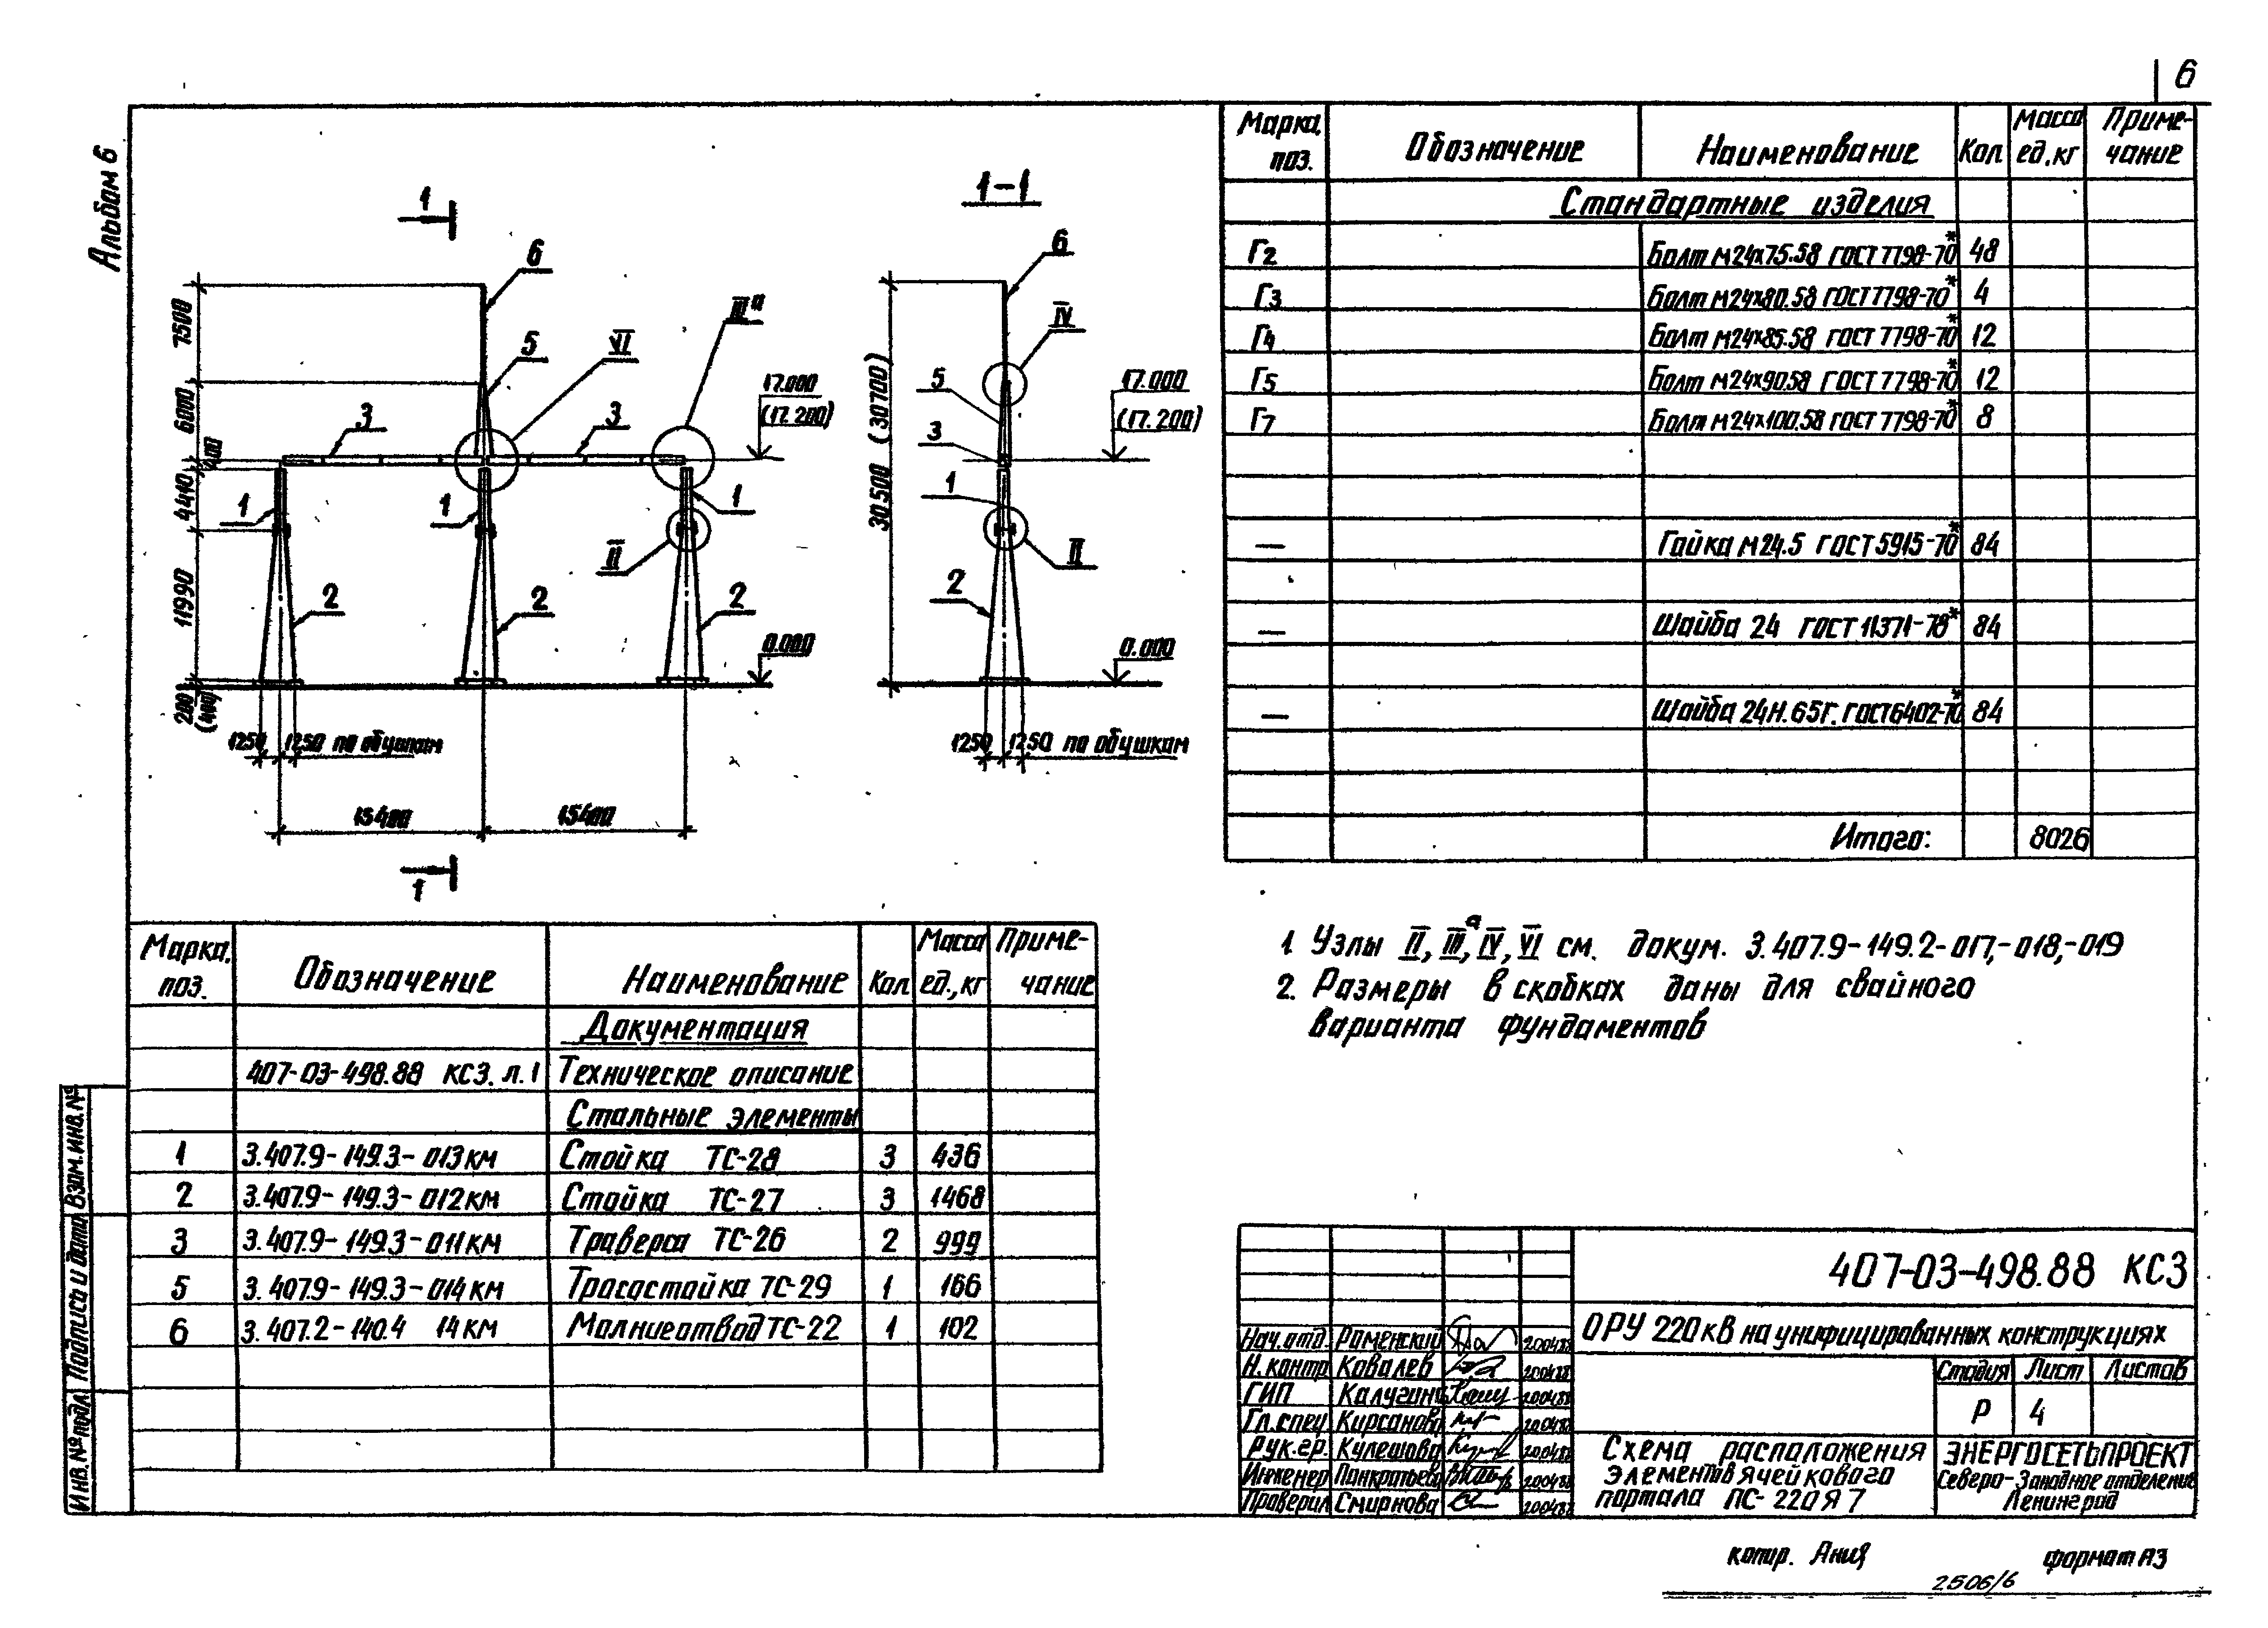 6
Альбом 6
1
1-1
6
6
IIIа
IV
5
VI
7500
6000
400
4410
11990
200
(400)
3
3
17.000
(17.200)
5
3
17.000
(17.200)
30.500 (30700)
1
1
1
1
II
II
2
2
2
2
0.000
0.000
1250 1250 по обушкам
1250 1250 по обушкам
15400 15400
1
Марка, поз. Обозначение Наименование Кол Масса ед.,кг Приме-чание
Стандартные изделия
Г2 Болт М24х75.58 ГОСТ 7798-70* 48
Г3 Болт М24х80.58 ГОСТ 7798-70* 4
Г4 Болт М24х85.58 ГОСТ 7798-70* 12
Г5 Болт М24х90.58 ГОСТ 7798-70* 12
Г7 Болт М24х100.58 ГОСТ 7798-70* 8
— Гайка М24.5 ГОСТ 5915-70* 84
— Шайба 24 ГОСТ 11371-78* 84
— Шайба 24Н.65Г. ГОСТ 6402-70* 84
Итого: 8026
Марка, поз. Обозначение Наименование Кол Масса ед.,кг Приме-чание
Документация
407-03-498.88 КС3. л.1 Техническое описание
Стальные элементы
1 3.407.9-149.3-013км Стойка ТС-28 3 436
2 3.407.9-149.3-012км Стойка ТС-27 3 1468
3 3.407.9-149.3-011км Траверса ТС-26 2 999
5 3.407.9-149.3-014км Тросостойка ТС-29 1 166
6 3.407.2-140.4 14км Молниеотвод ТС-22 1 102
1 Узлы II, IIIа, IV, VI см. докум. 3.407.9-149.2-017,-018,-019
2. Размеры в скобках даны для свайного
варианта фундаментов
Взам.инв.№
Подпись и дата
Инв.№подл.
407-03-498.88 КС3
ОРУ 220кВ на унифицированных конструкциях
Нач.отд. Роменский 200488
Н.контр Ковалев 200488
ГИП Калугина 200488
Гл.спец Кирсанова 200488
Рук.гр. Кулешова 200488
Инженер Панкратьева 200488
Проверил Смирнова 200488
Стадия Лист Листов
Р 4
Схема расположения
элементов ячейкового
портала ПС-220Я7
ЭНЕРГОСЕТЬПРОЕКТ
Северо-Западное отделение
Ленинград
копир. Ания
формат А3
2506/6